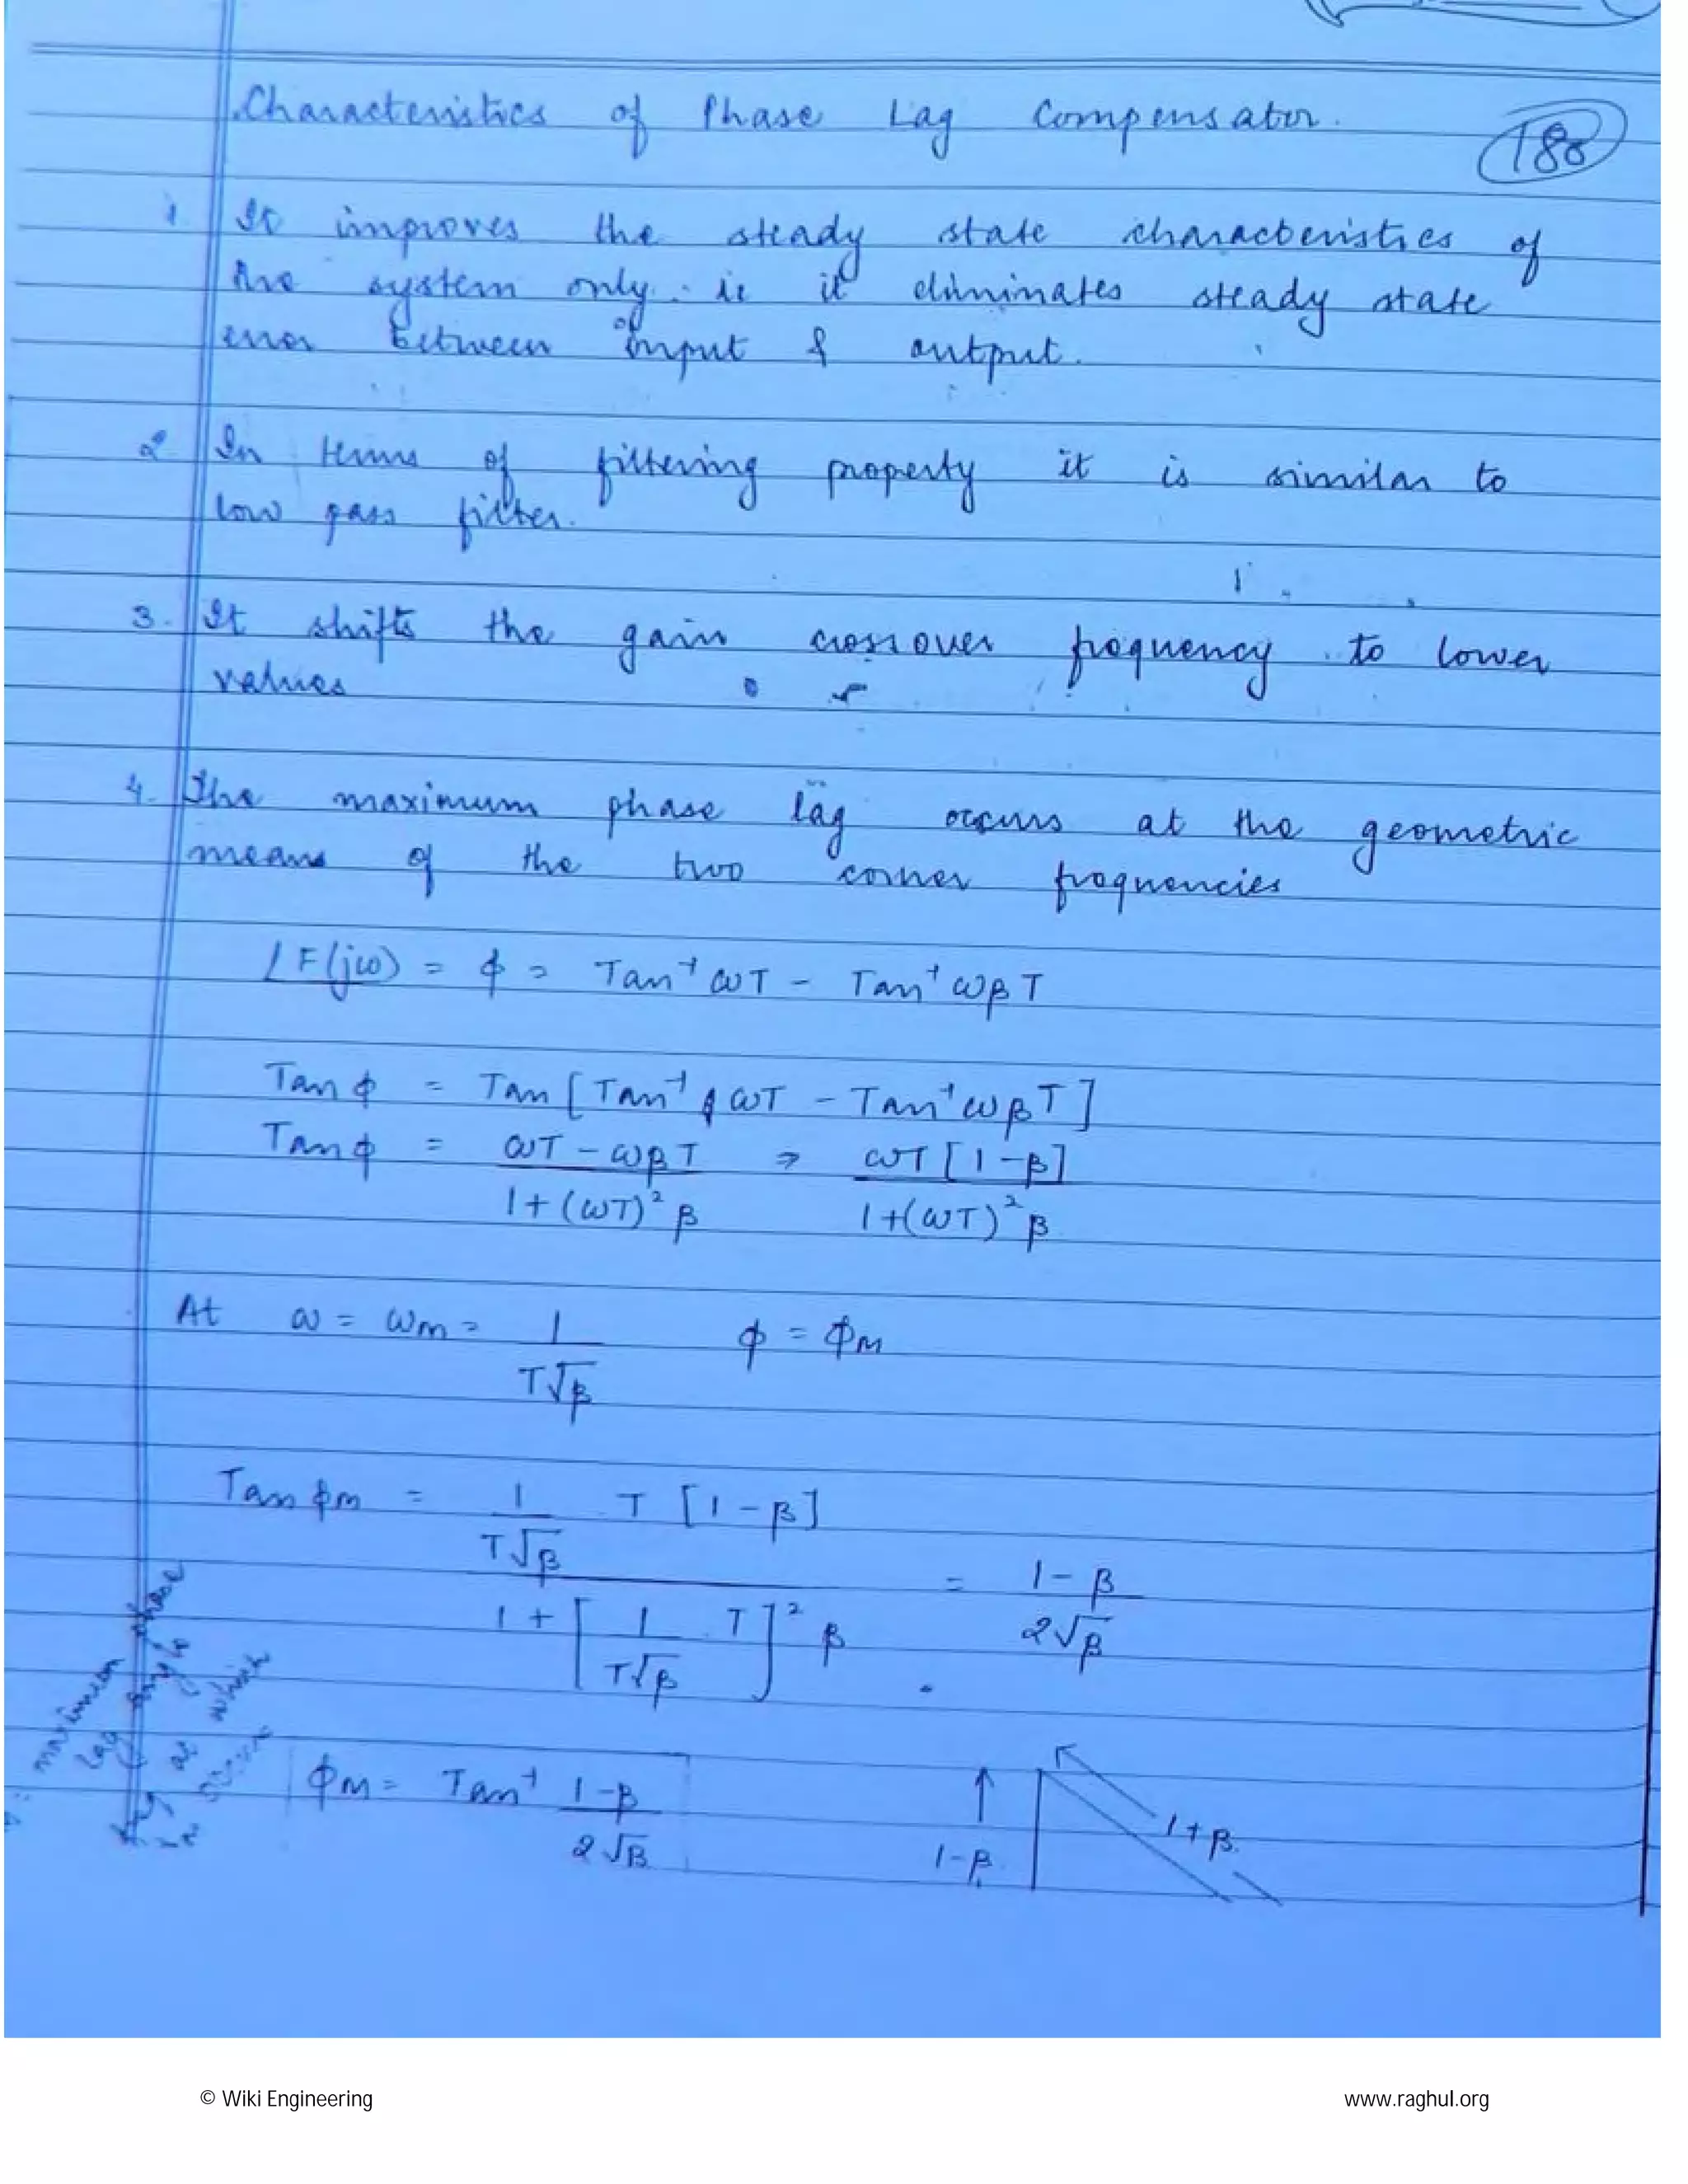 Characteristics of Phase Lag Compensator.
188
1. It improves the steady state characteristics of
the system only. ie it eliminates steady state
error between input & output.
2 In terms of filtering property it is similar to
low pass filter.
3. It shifts the gain crossover frequency to lower
values
4. The maximum phase lag occurs at the geometric
means of the two corner frequencies
∠F(jω) = ϕ = Tan⁻¹ ωT - Tan⁻¹ ωβT
Tan ϕ = Tan [Tan⁻¹ ωT - Tan⁻¹ ωβT]
Tan ϕ = ωT - ωβT / 1+(ωT)² β ⇒ ωT[1-β] / 1+(ωT)² β
At ω = ωm = 1 / T√β ϕ = ϕm
Tan ϕm = 1 / T√β . T [1-β] / 1 + [1 / T√β . T]² β = 1-β / 2√β
maximum phase
lag angle
at which
ϕm = Tan⁻¹ 1-β / 2√β
1-β
1+β
© Wiki Engineering
www.raghul.org